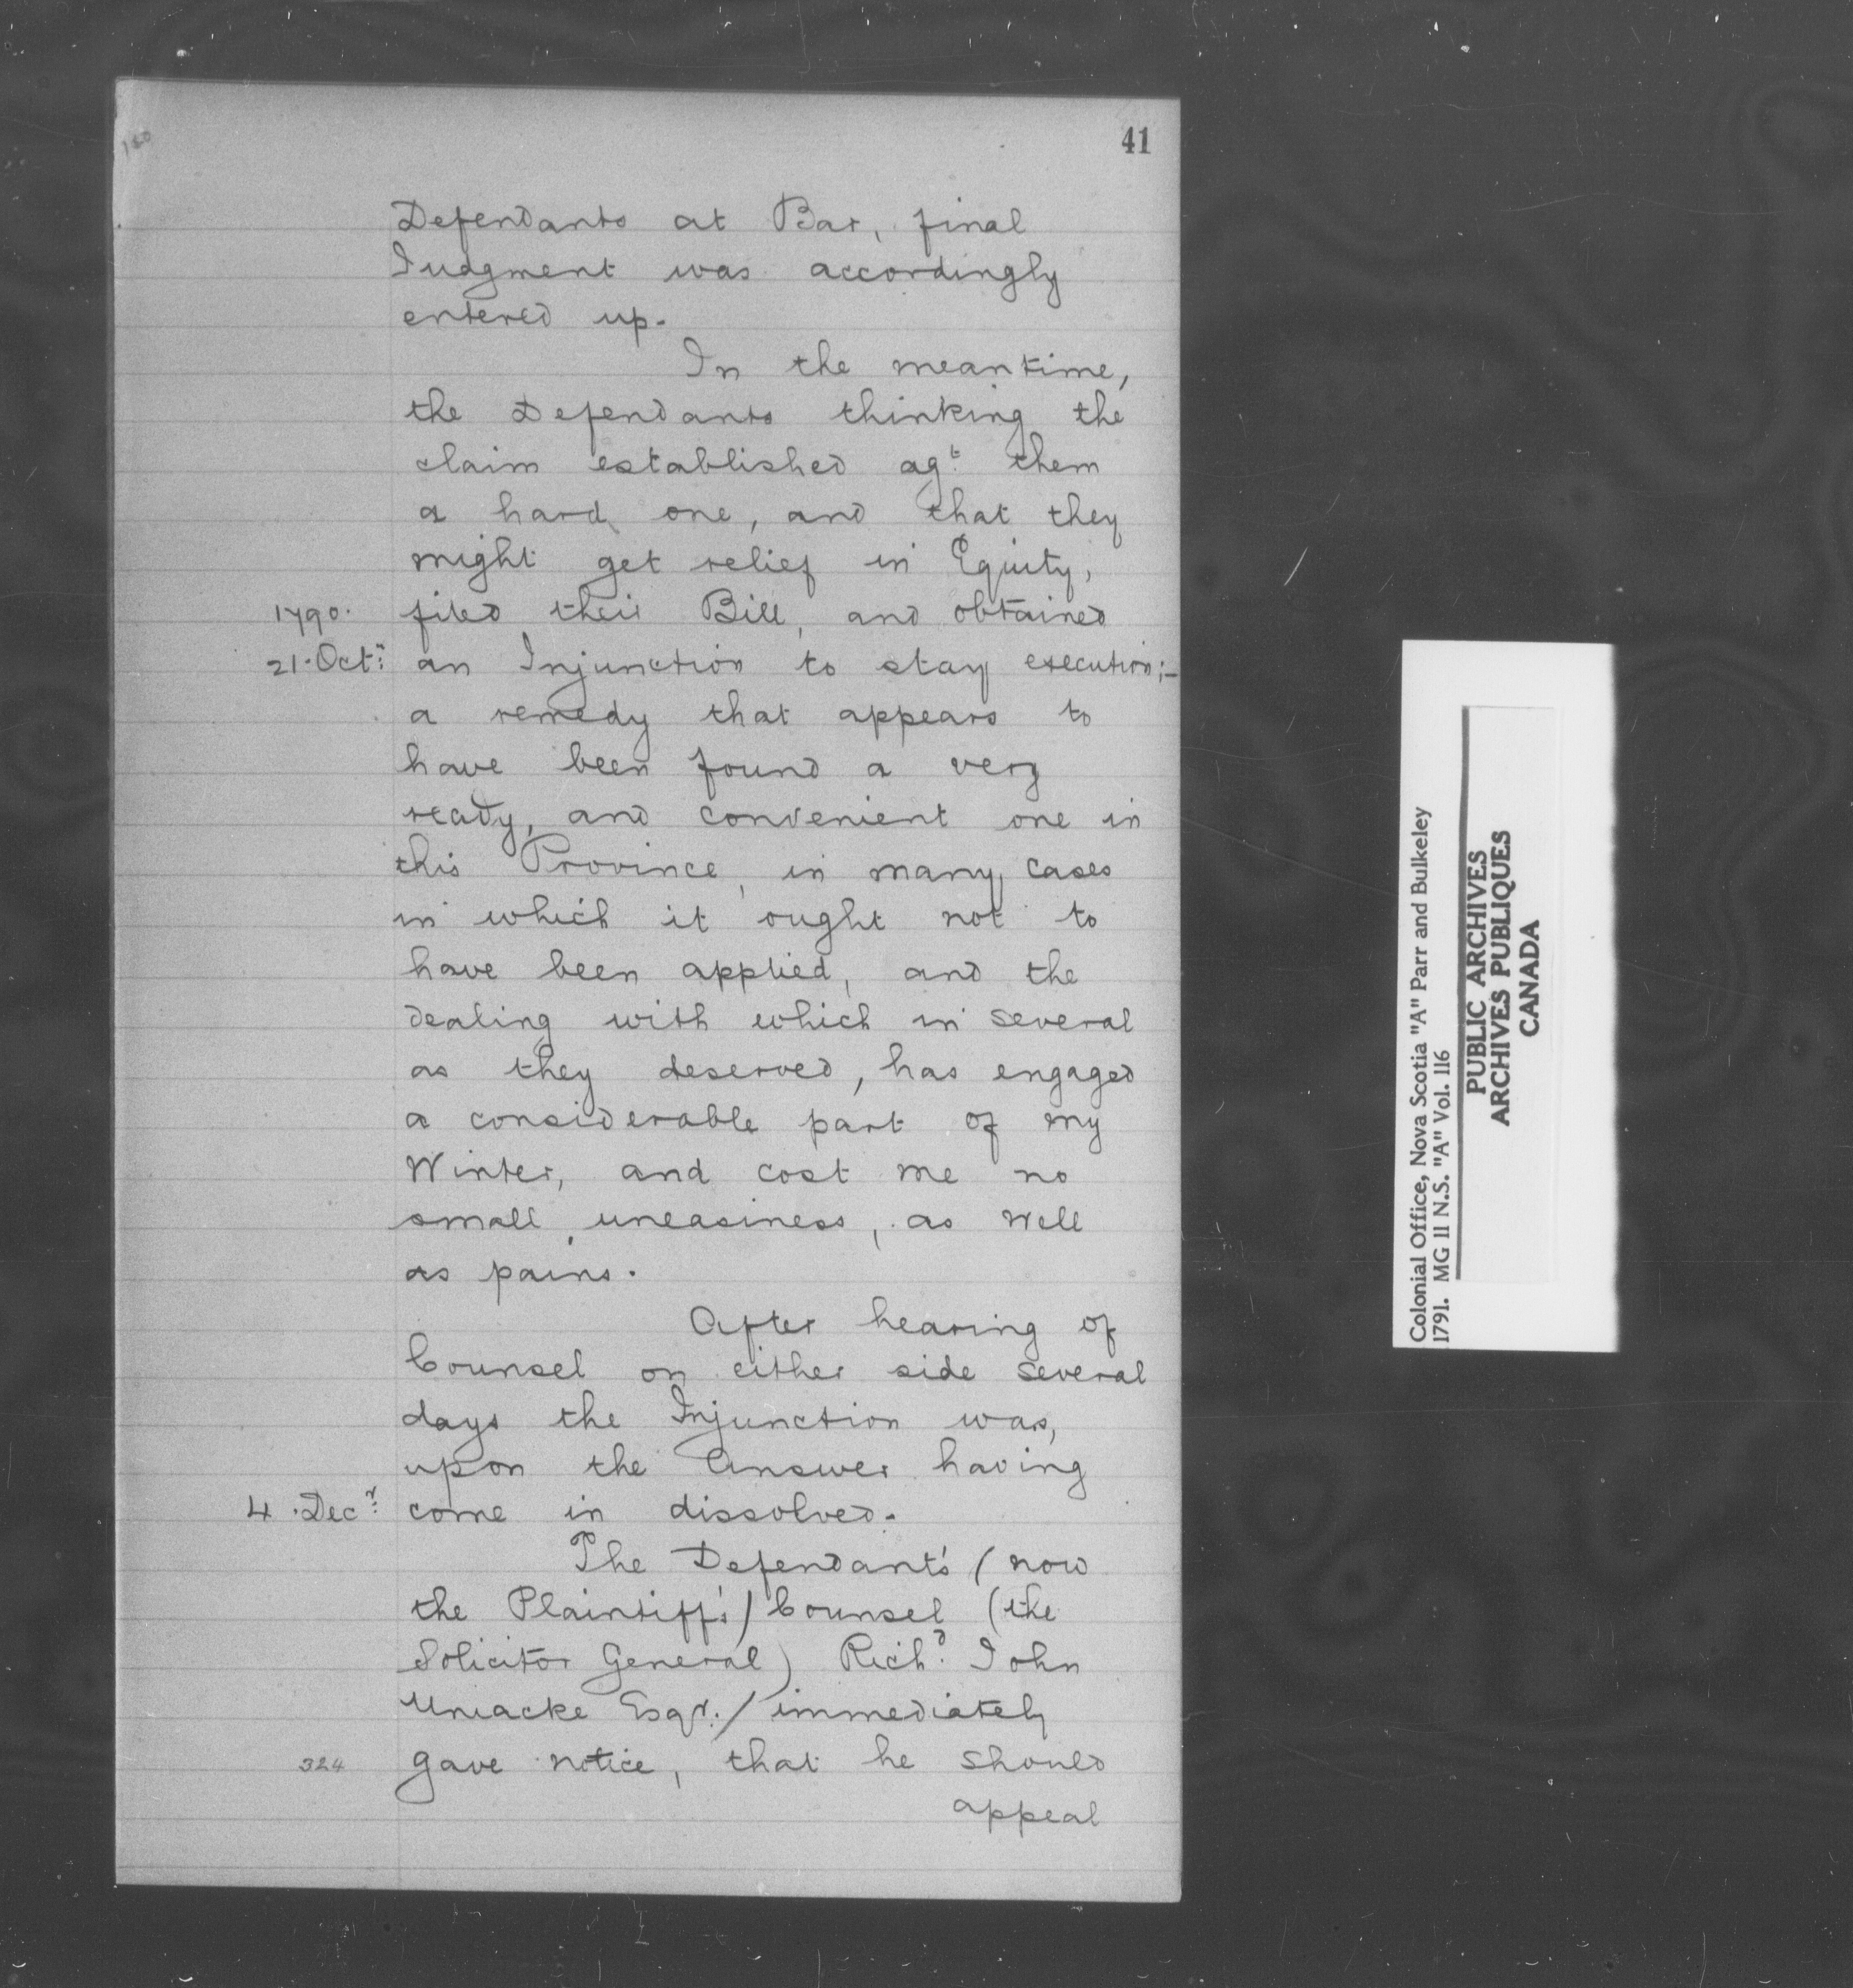 41
Defendants at Bar, final
Judgment was accordingly
entered up.
In the meantime,
the Defendants thinking the
claim established agt. them
a hard one, and that they
might get relief in Equity,
1790. filed their Bill, and obtained
21. Octr: an Injunction to stay execution;-
a remedy that appears to
have been found a very
ready, and convenient one in
this Province, in many cases
in which it ought not to
have been applied, and the
dealing with which in several
as they deserved, has engaged
a considerable part of my
Winter, and cost me no
small uneasiness, as well
as pains.
After hearing of
Counsel on either side several
days the Injunction was,
upon the Answer having
4. Decr: come in dissolved.
The Defendant's (now
the Plaintiff's) Counsel (the
Solicitor General) Richd. John
Uniacke Esqr./ immediately
324 gave notice, that he should
appeal
Colonial Office, Nova Scotia "A" Parr and Bulkeley
1791. MG 11 N.S. "A" Vol. 116
PUBLIC ARCHIVES
ARCHIVES PUBLIQUES
CANADA